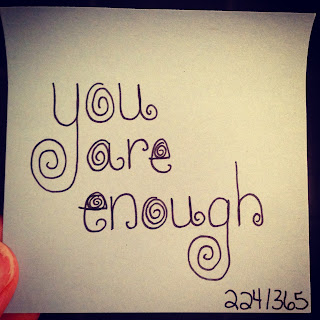 you
are
enough
224/365